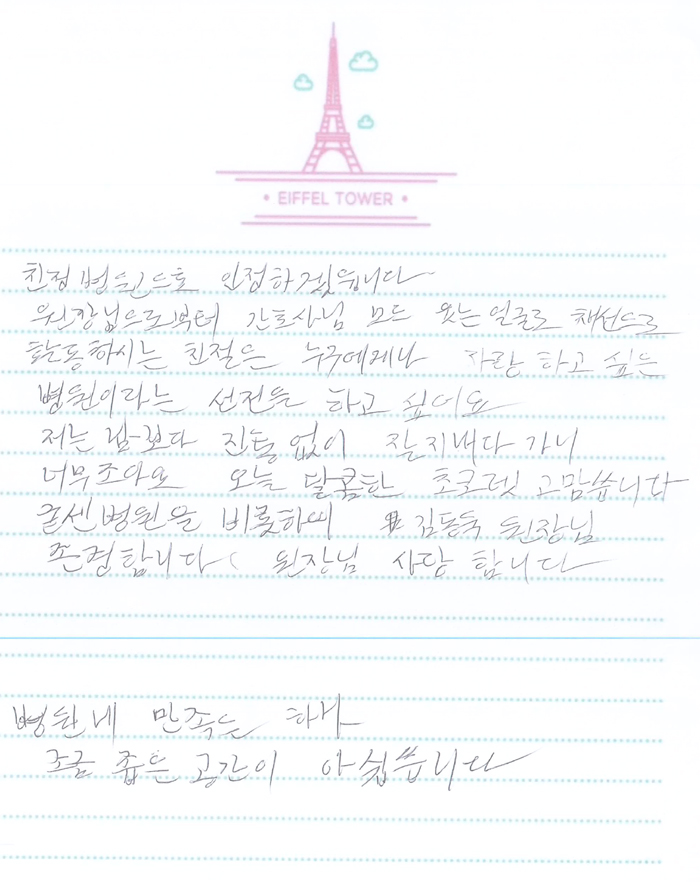 EIFFEL TOWER
친정병원으로 인정하겠읍니다
원장님으로부터 간호사님 모드 웃는얼굴로 채선으로
활동하시는 친절은 누구에게나 자랑 하고 싶은
병원이라는 선전을 하고 싶어요
저는 보다 진통 없이 잘지내다 가니
너무조아요 오늘 달콤한 초코렛 고맘씁니다
굳센병원을 비롯하며 김동욱 원장님
존경합니다 원장님 사랑 합니다
병원네 만족는 하나
조금 좁은 공간이 아쉽씁니다